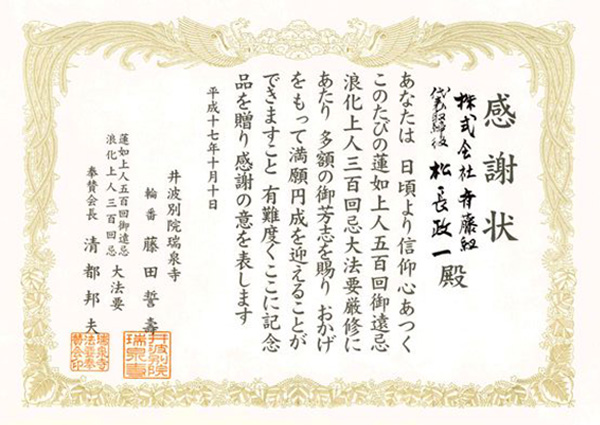 感謝状
株式会社斉藤組
代表取締役 松長政一殿
あなたは 日頃より信仰心あつく
このたびの蓮如上人五百回御遠忌
浪化上人三百回忌大法要厳修に
あたり 多額の御芳志を賜り おかげ
をもって満願円成を迎えることが
できますこと 有難度くここに記念
品を贈り感謝の意を表します
平成十七年十月十日
井波別院瑞泉寺
輪番 藤田誓壽
蓮如上人五百回御遠忌
浪化上人三百回忌
大法要
奉賛会長 清都邦夫
井波別院
瑞泉寺
瑞泉寺
法要奉
賛会印